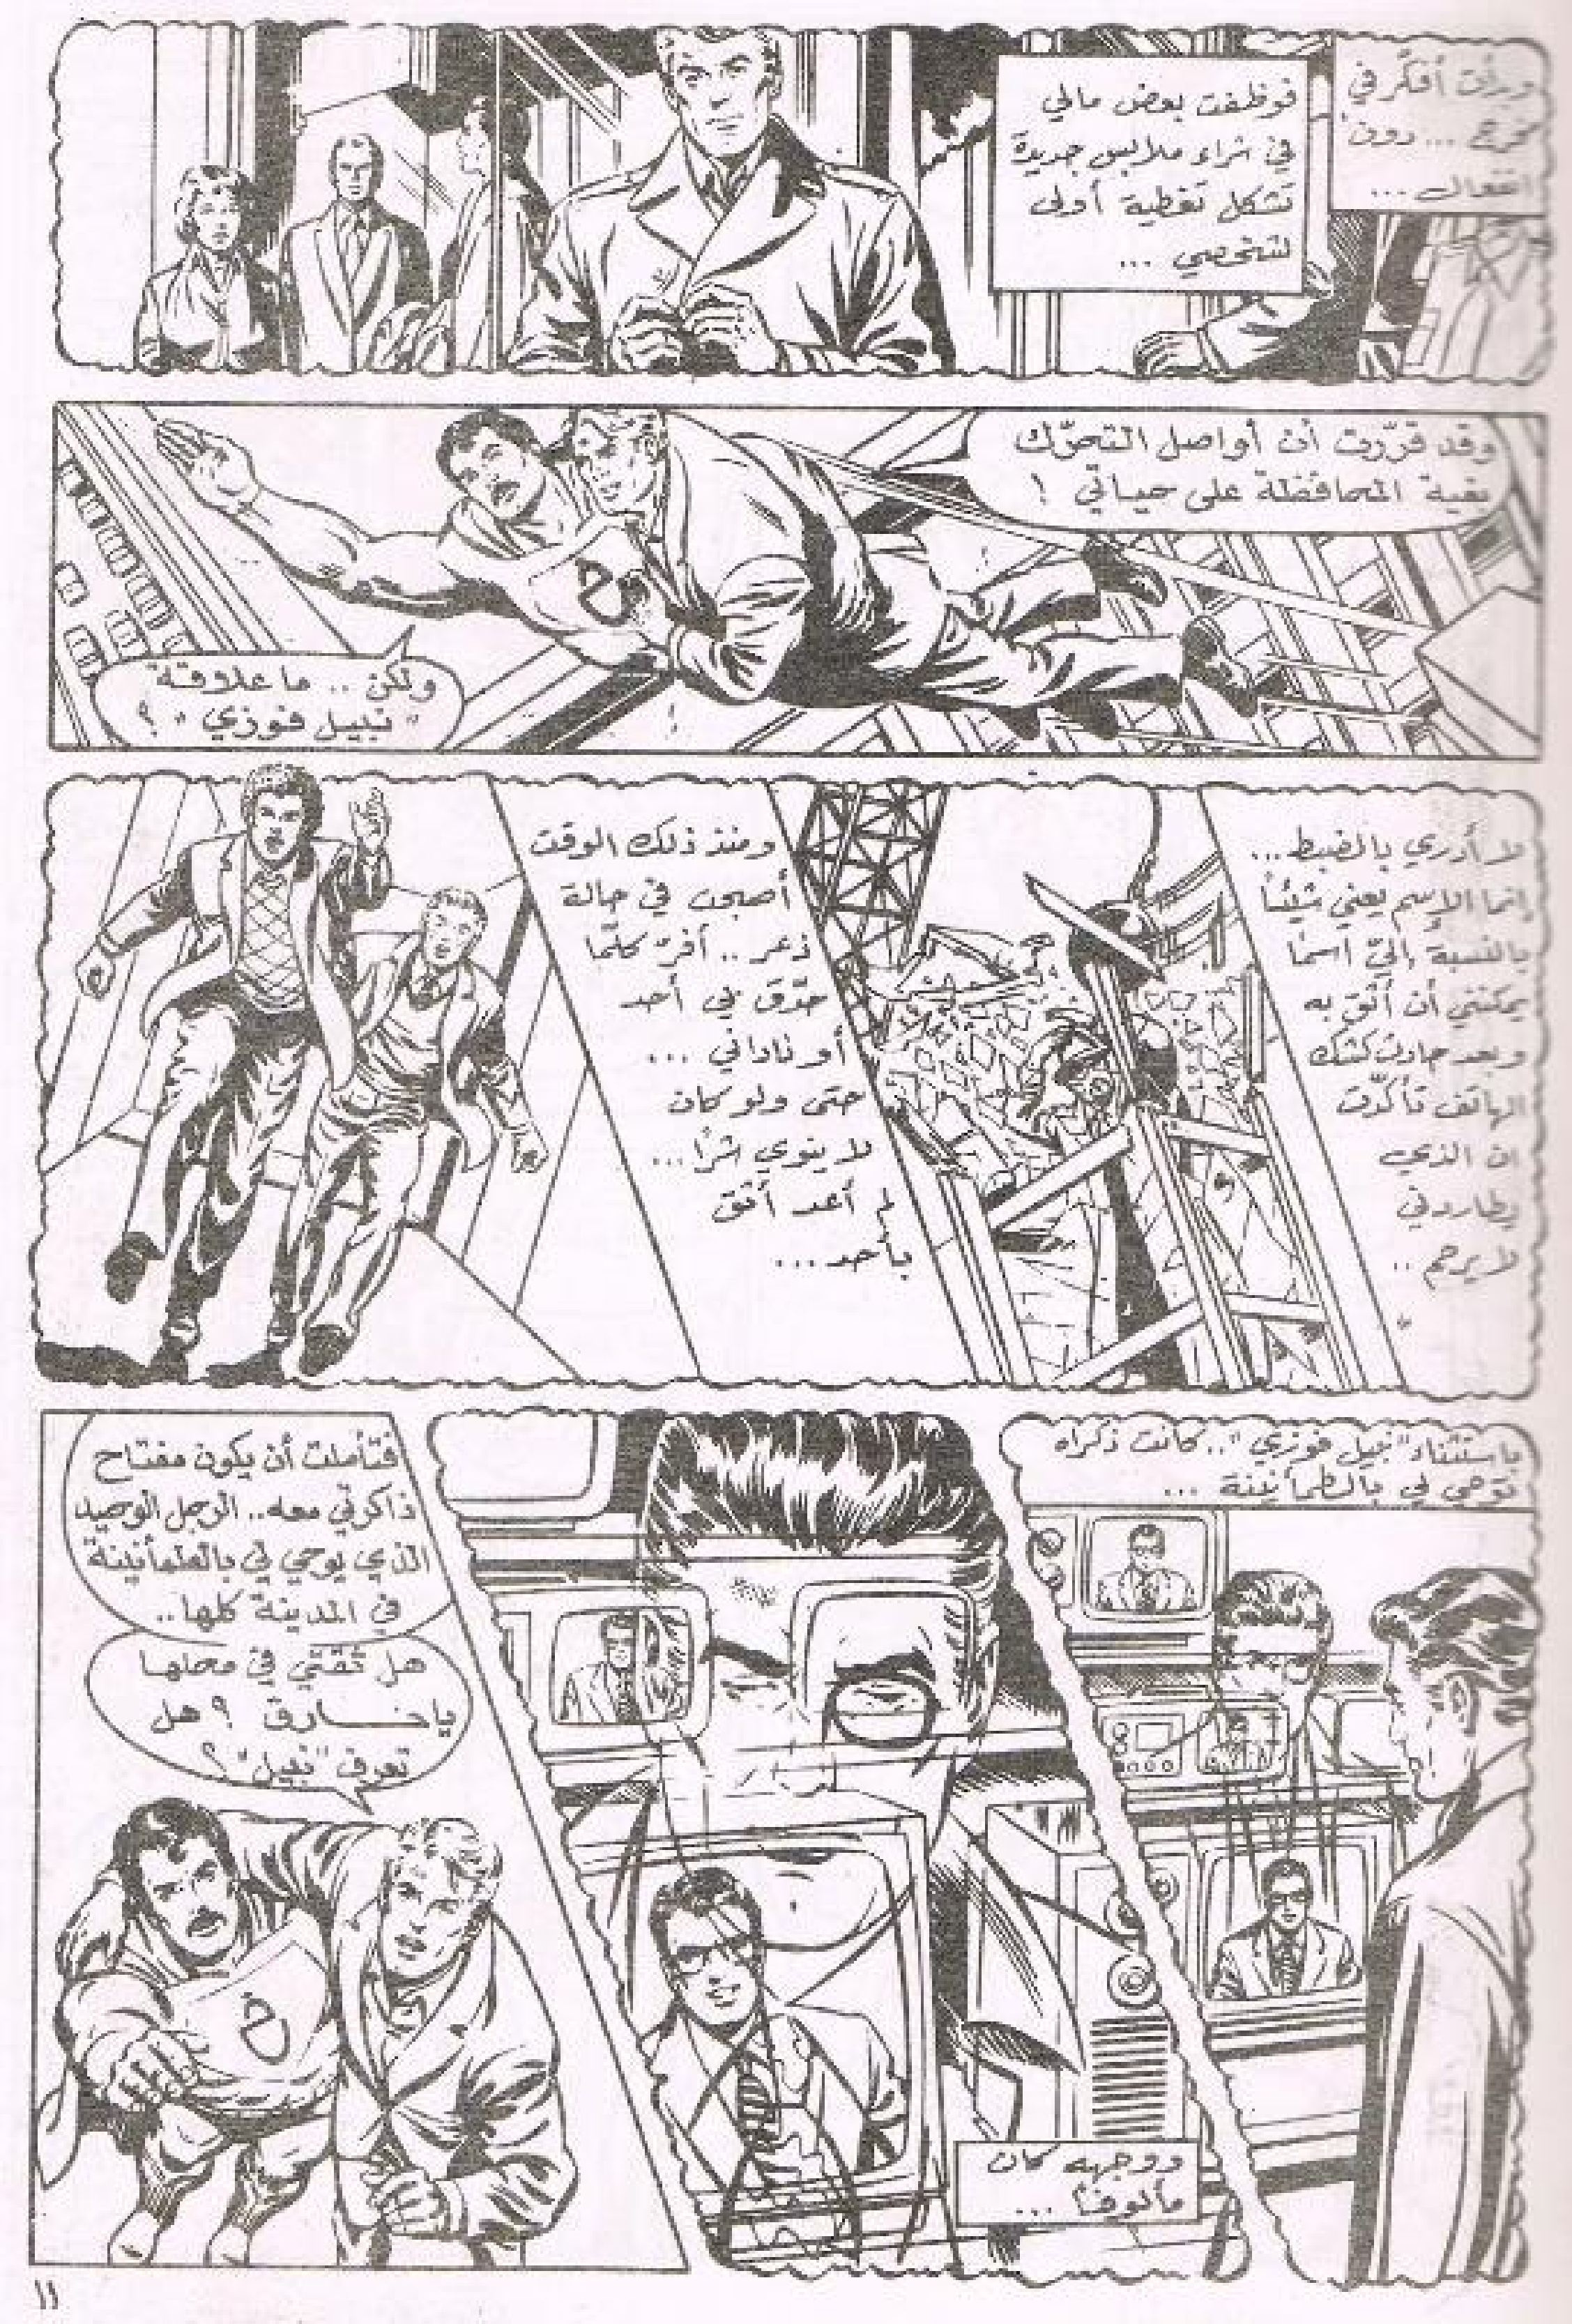 وبدأت أفكّر في
مخرج ... دون
انفعال ...
فوظفت بعض مالي
في شراء ملابس جديدة
تشكل تغطية أولى
لشخصي ...
وقد قرّرت أن أواصل التحرّك
بغية المحافظة على حياتي !
ولكن .. ما علاقة
"نبيل فوزي" ؟
لا أدري بالضبط...
إنما الإسم يعني شيئاً
بالنسبة إليّ اسما
يمكنني أن أثق به
وبعد حادث كشك
الهاتف تأكّدت
ان الذي
يطاردني
لا يرحم ..
ومنذ ذلك الوقت
أصبحت في حالة
ذعر .. أفرّ كلّما
حدّق بي أحد
أو ناداني ...
حتى ولو كان
لا ينوي شرًا ...
لم أعد أثق
بأحد ...
باستثناء "نبيل فوزي" .. كانت ذكراه
توحي لي بالطمأنينة ...
ووجهه كان
مألوفاً ...
فتأملت أن يكون مفتاح
ذاكرتي معه.. الرجل الوحيد
الذي يوحي لي بالطمأنينة
في المدينة كلها ..
هل ثقتي في محلها
يا خارق ؟ هل
تعرف "نبيل" ؟
١١